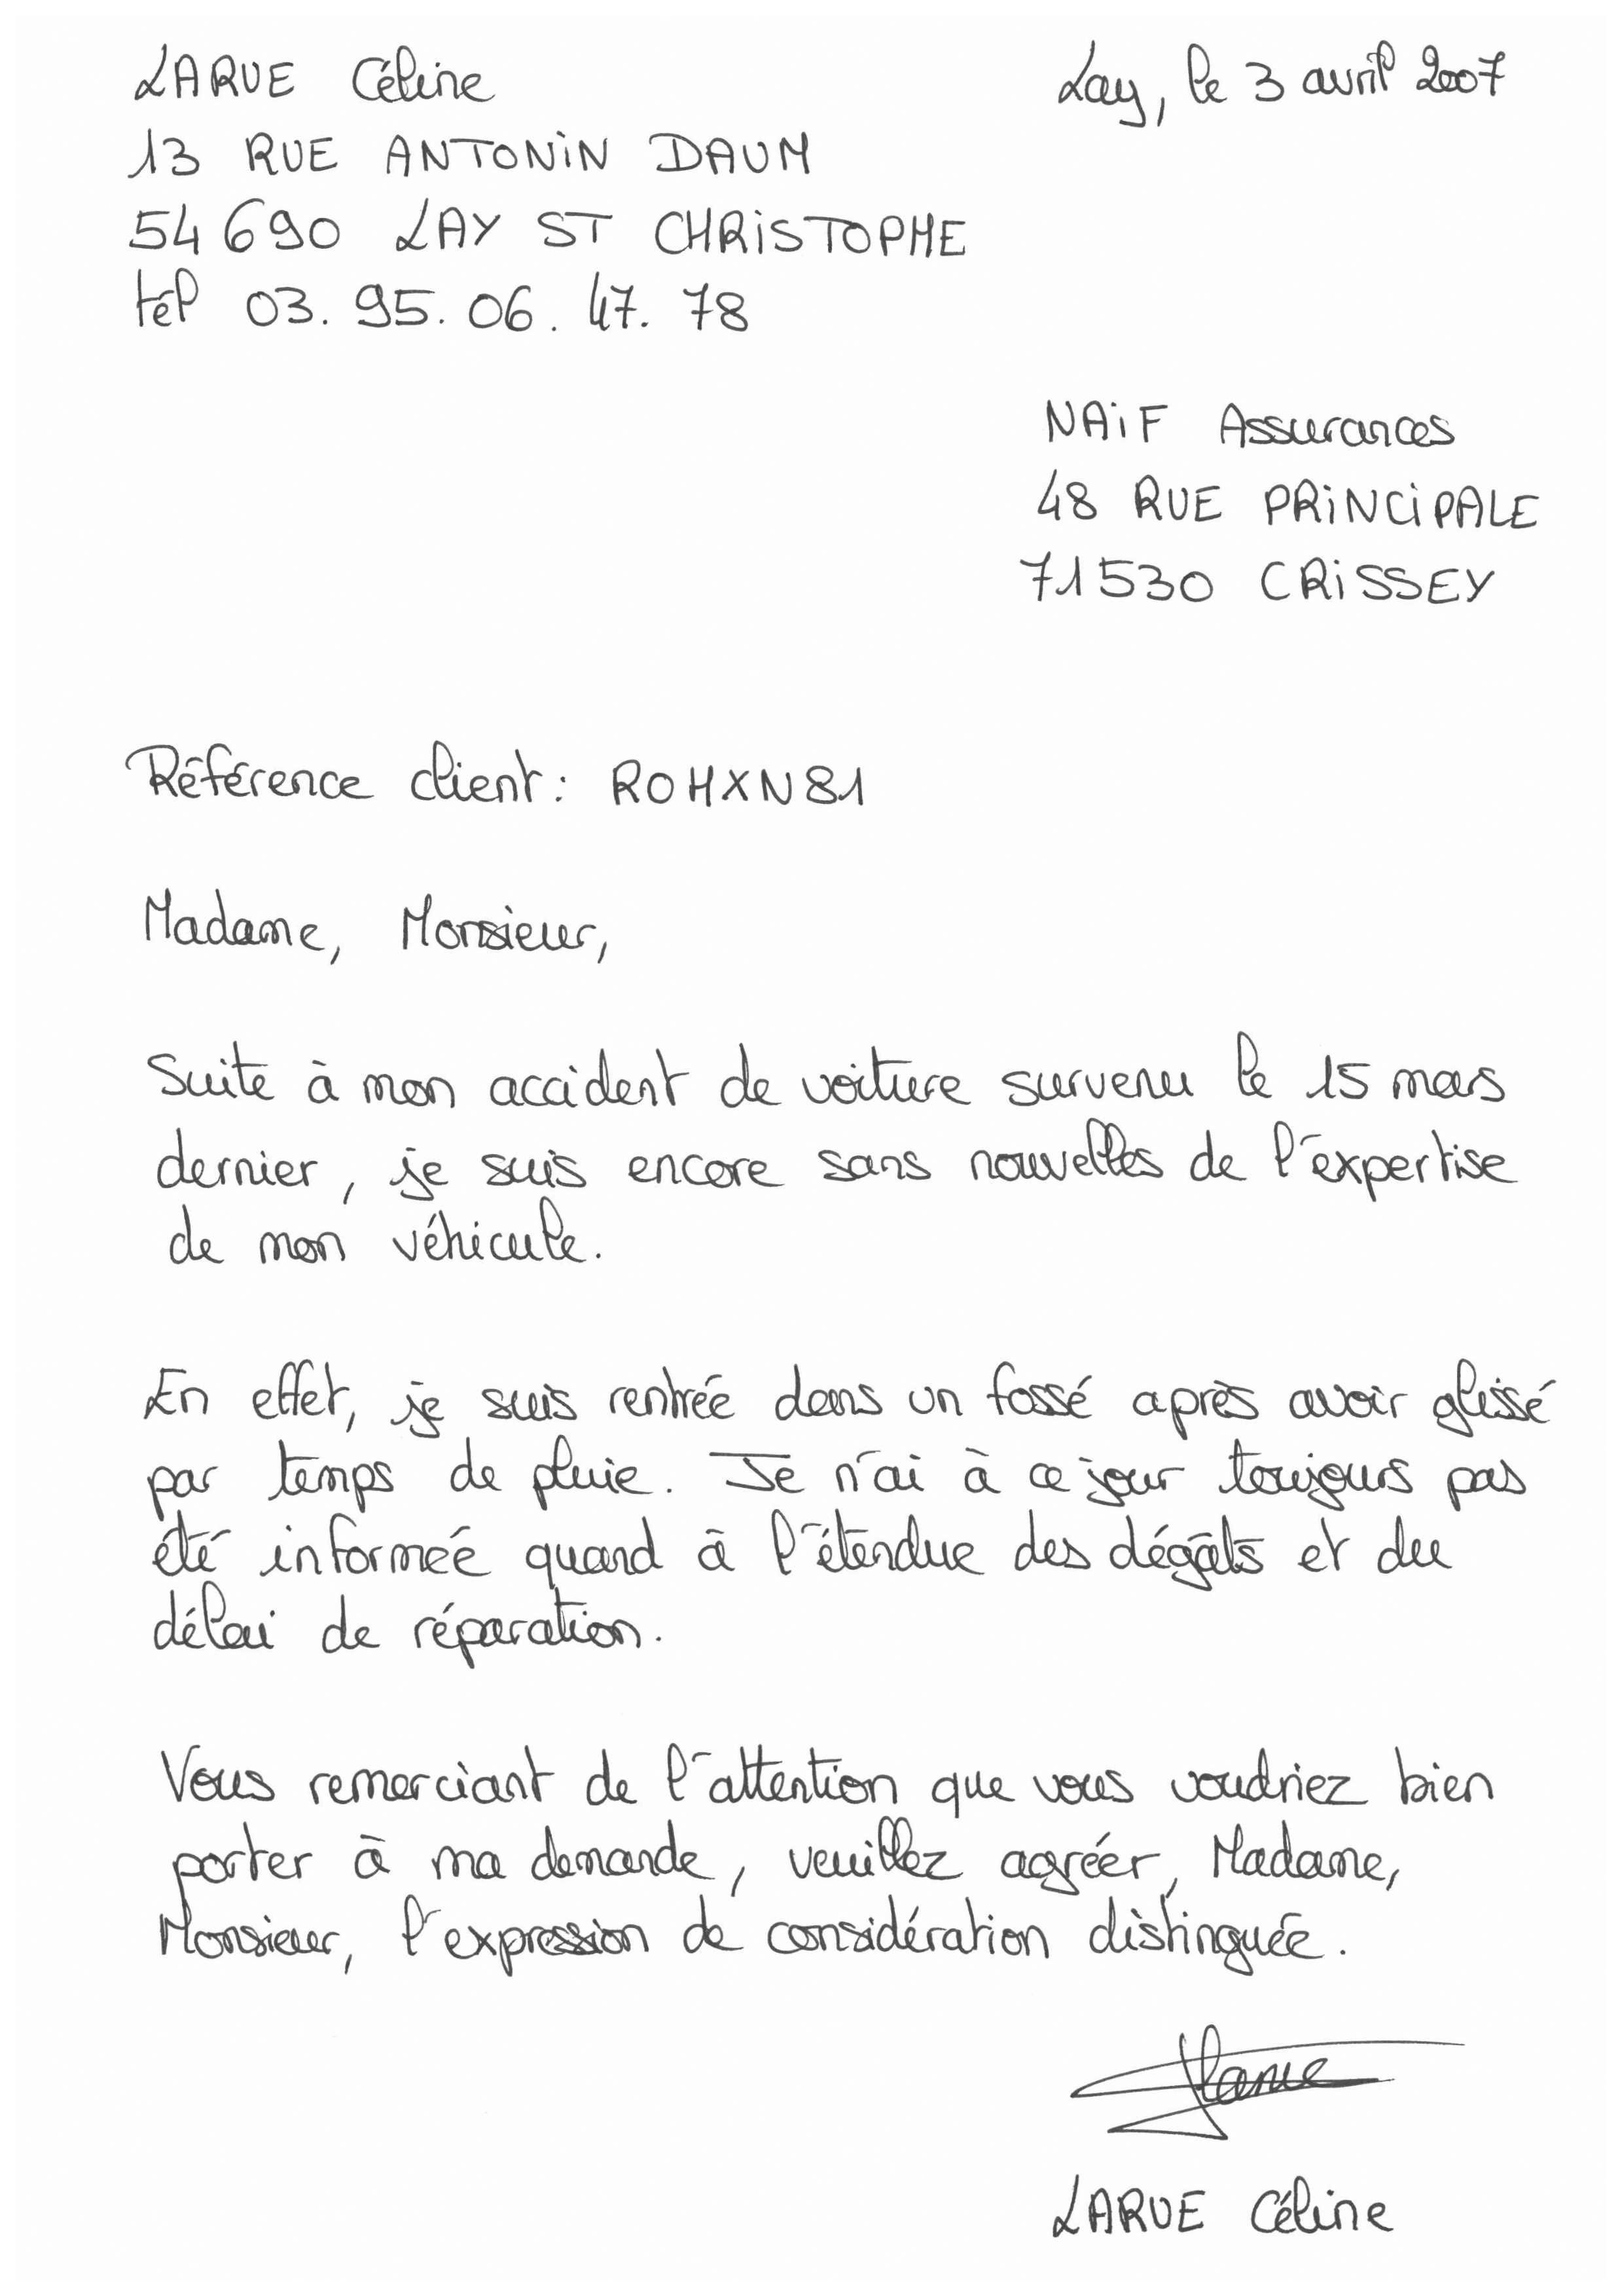 LARUE Céline
Lay, le 3 avril 2007
13 RUE ANTONIN DAUM
54 690 LAY ST CHRISTOPHE
tél 03. 95. 06. 47. 78
NAIF Assurances
48 RUE PRINCIPALE
71530 CRISSEY
Référence client : ROHXN81
Madame, Monsieur,
Suite à mon accident de voiture survenu le 15 mars
dernier, je suis encore sans nouvelles de l'expertise
de mon véhicule.
En effet, je suis rentrée dans un fossé après avoir glissé
par temps de pluie. Je n'ai à ce jour toujours pas
été informée quand à l'étendue des dégâts et du
délai de réparation.
Vous remerciant de l'attention que vous voudriez bien
porter à ma demande, veuillez agréer, Madame,
Monsieur, l'expression de considération distinguée.
Larue
LARUE Céline